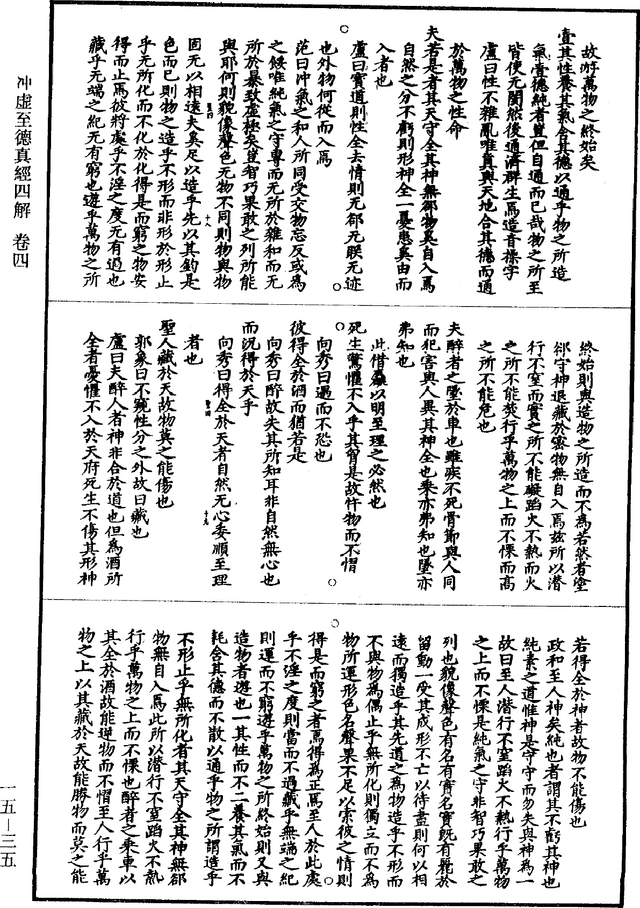 故游萬物之終始矣
壹其性養其氣含其德以通乎物之所造
氣壹德純者豈但自通而已哉物之所至
皆使无閡然後通濟群生焉造音操字
盧曰性不雜亂唯真與天地合其德而通
於萬物之性命
夫若是者其天守全其神無郤物奚自入焉
自然之分不虧則形神全一憂患奚由而
入者也
盧曰實道則性全去情則无郤无朕无迹
也外物何從而入焉
范曰沖氣之和人所同受交物忘反或為
之候唯純氣之守專而无所於雜和而无
所於暴致虛極矣豈智巧果敢之列所能
與耶何則貌像聲色无物不同則物與物
固无以相遠夫奚足以造乎先以其釣是
色而已則物之造乎不形而非形於形止
乎无所化而不化於化得是而窮之物安
得而止焉彼將處乎不淫之度无有過也
藏乎无端之紀无有窮也遊乎萬物之所
終始則與造物之所造而不為若然者塗
郤守神退藏於密物無自入焉茲所以潛
行不窒而實之所不能礙蹈火不熱而火
之所不能焚行乎萬物之上而不慄而高
之所不能危也
夫醉者之墜於車也雖疾不死骨節與人同
而犯害與人異其神全也乘亦弗知也墜亦
弗知也
此借麤以明至理之必然也
死生驚懼不入乎其胷是故忤物而不慴
向秀曰遇而不恐也
彼得全於酒而猶若是
向秀曰醉故失其所知耳非自然無心也
而況得於天乎
向秀曰得全於天者自然无心委順至理
者也
聖人藏於天故物莫之能傷也
郭象曰不窺性分之外故曰藏也
盧曰夫醉人者神非合於道也但為酒所
全者憂懼不入於天府死生不傷其形神
若得全於神者故物不能傷也
政和至人神矣純也者謂其不虧其神也
純素之道惟神是守守而勿失與神為一
故曰至人潛行不窒蹈火不熱行乎萬物
之上而不慄是純氣之守非智巧果敢之
列也貌像聲色有名有實名實既有麗於
留動一受其成形不亡以待盡則何以相
遠而獨造乎其先道之為物造乎不形而
不與物為偶止乎無所化則獨立而不為
物所運形色名聲果不足以索彼之情則
得是而窮之者焉得為正焉至人於此處
乎不淫之度則當而不過藏乎無端之紀
則運而不窮遊乎萬物之所終始則又與
造物者遊也一其性而不二養其氣而不
耗含其德而不散以通乎物之所謂造乎
不形止乎無所化者其天守全其神無郤
物無自入焉此所以潛行不窒蹈火不熱
行乎萬物之上而不慄也醉者之乘車以
其全於酒故能逆物而不慴至人行乎萬
物之上以其藏於天故能勝物而莫之能
冲虛至德真經四解 卷四
一五—三五